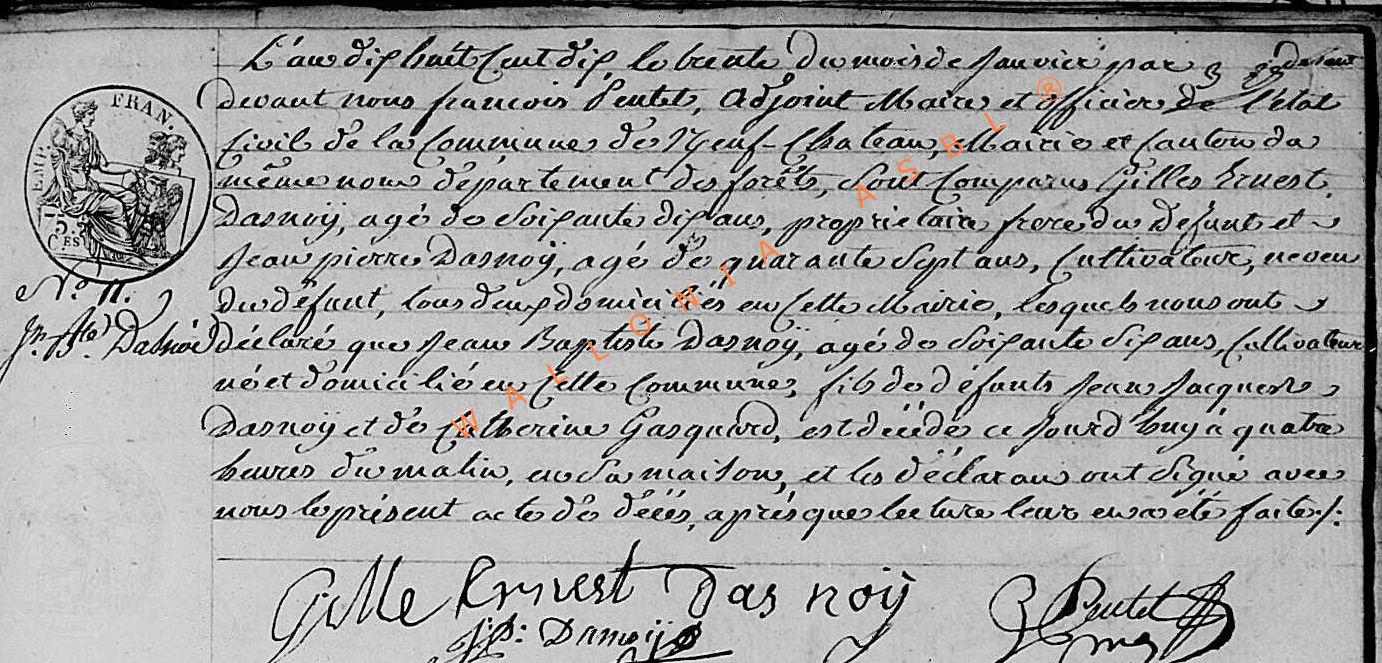 L'an dix huit Cent dix le trente du mois de Janvier par
devant nous françois Pentet, Adjoint Maire et officier de l'état
Civil de la Commune de Neuf-Chateau, Mairie et Canton du
même nom département des forêts, Sont Comparus Gilles Ernest
Dasnoÿ, agé de Soixante dix ans, proprietaire frere du défunt et
Jean pierre Dasnoÿ, agé de quarante Sept ans, Cultivateur, neveu
du défunt, tous deux domiciliés en Cette Mairie, lesquels nous ont
déclaré que Jean Baptiste Dasnoÿ, agé de Soixante Six ans, Cultivateur
né et domicilié en Cette Commune, fils de défunts Jean Jacques
Dasnoÿ et de Catherine Gasquard, est décédé ce Jourd'huy à quatre
heures du matin, en Sa maison, et les déclarans ont Signé avec
nous le présent acte de décés, après que lecture leur en a été faite ./.
FRAN.
EMP.
75.
CES
No. 11.
Jn. Bte. Dasnoÿ
Gille Ernest Dasnoÿ
J:P: Dasnoÿ
Pentet
WALLONIA ASBL ®